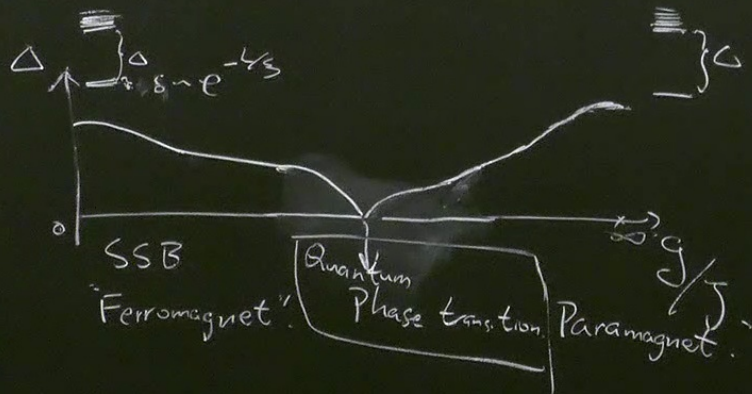 Δ
Δ
δ ~ e^{-L/ξ}
Δ
0
∞
g/J
SSB
"Ferromagnet".
Quantum
Phase transition.
Paramagnet.